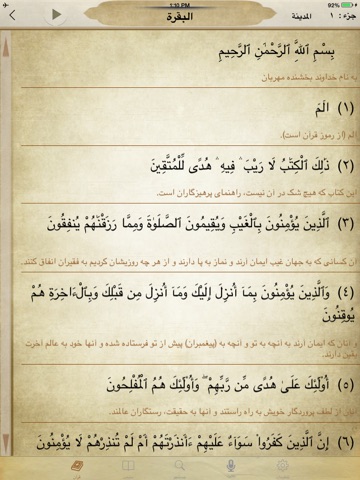 1:10 PM
92%
البقرة
جزء: ١
المدینة
بِسْمِ ٱللَّهِ ٱلرَّحْمَٰنِ ٱلرَّحِيمِ
به نام خداوند بخشنده مهربان
(١) الٓمٓ
الم (از رموز قرآن است).
(٢) ذَٰلِكَ ٱلْكِتَٰبُ لَا رَيْبَ ۛ فِيهِ ۛ هُدًى لِّلْمُتَّقِينَ
این کتاب که هیچ شک در آن نیست، راهنمای پرهیزگاران است.
(٣) ٱلَّذِينَ يُؤْمِنُونَ بِٱلْغَيْبِ وَيُقِيمُونَ ٱلصَّلَوٰةَ وَمِمَّا رَزَقْنَٰهُمْ يُنفِقُونَ
آن کسانی که به جهان غیب ایمان آرند و نماز به پا دارند و از هر چه روزیشان کردیم به فقیران انفاق کنند.
(٤) وَٱلَّذِينَ يُؤْمِنُونَ بِمَآ أُنزِلَ إِلَيْكَ وَمَآ أُنزِلَ مِن قَبْلِكَ وَبِٱلْءَاخِرَةِ هُمْ
يُوقِنُونَ
و آنان که ایمان آرند به آنچه به تو و آنچه به (پیغمبران) پیش از تو فرستاده شده و آنها خود به عالم آخرت
یقین دارند.
(٥) أُو۟لَٰٓئِكَ عَلَىٰ هُدًى مِّن رَّبِّهِمْ ۖ وَأُو۟لَٰٓئِكَ هُمُ ٱلْمُفْلِحُونَ
آنان از لطف پروردگار خویش به راه راستند و آنها به حقیقت، رستگاران عالمند.
(٦) إِنَّ ٱلَّذِينَ كَفَرُوا۟ سَوَآءٌ عَلَيْهِمْ ءَأَنذَرْتَهُمْ أَمْ لَمْ تُنذِرْهُمْ لَا يُؤْمِنُونَ